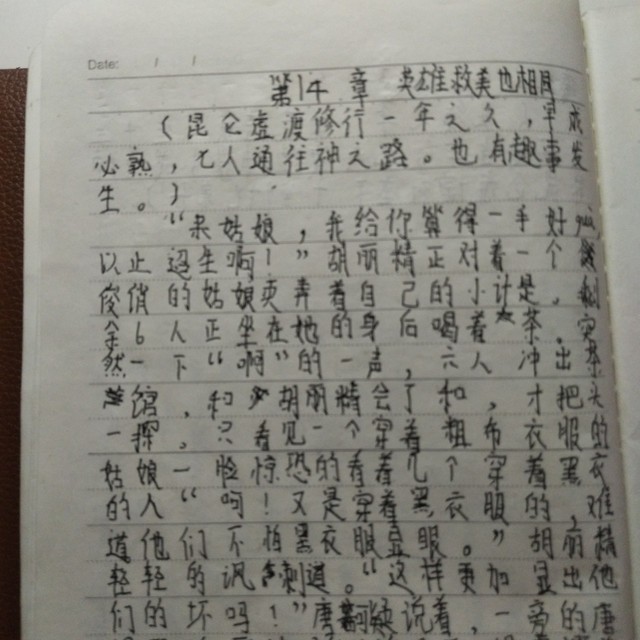 Date: / /
第14章 英雄救美也相同
（昆仑虚渡修行一年之久，早成
必熟，七人通往神之路。也有趣事发
生。）
“来姑娘，我给你算得一手好
以止迢生啊！”胡丽精正对着一个
俊俏的姑娘卖弄着自己的小计是。
余6人正坐在她的身后喝着茶。突
然一下“啊”的一声，六人冲出茶
馆，和胡丽精会了和，才把头
一探。只看见一个穿着粗布衣服的
姑娘一脸惊恐的看着几个穿着黑衣
的人“呵！又是穿着黑衣服的，难
道他们不怕黑衣服显眼。”胡丽精
轻轻的讽刺道。“这样更加显出他
们的坏吗！”唐翩说着，一旁的唐